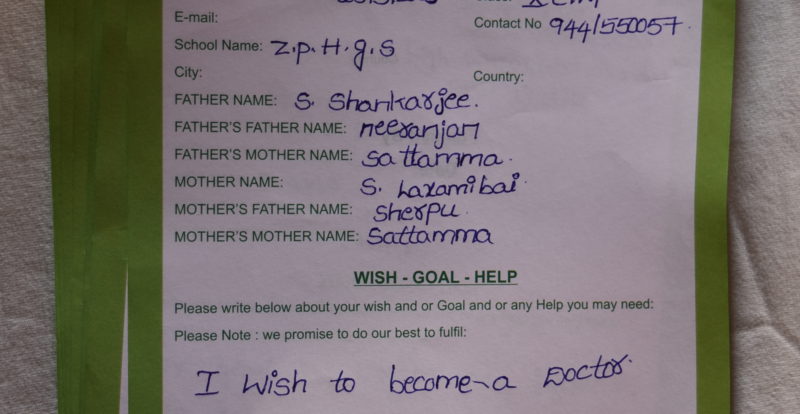 E-mail:
Contact No 944/550057.
School Name: Z.P.H.g.S
City: Country:
FATHER NAME: S. Shankarjee.
FATHER'S FATHER NAME: neeranjan
FATHER'S MOTHER NAME: Sattamma.
MOTHER NAME: S. Laxamibai
MOTHER'S FATHER NAME: Sherpu
MOTHER'S MOTHER NAME: Sattamma
WISH - GOAL - HELP
Please write below about your wish and or Goal and or any Help you may need:
Please Note : we promise to do our best to fulfil:
I Wish to become a Doctor.